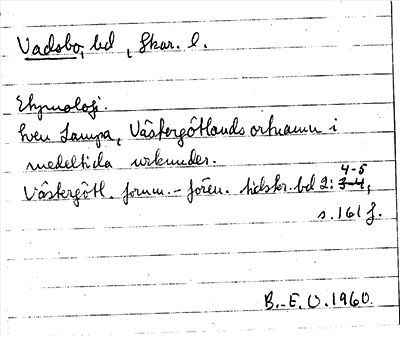 Vadsbo, hd, Skar. l.
Etymologi.
Sven Lampa, Västergötlands ortnamn i
medeltida urkunder.
Västergötl. fornm.-fören. tidskr. bd 2: 3-4 4-5,
s. 161 f.
B.-E. O. 1960.